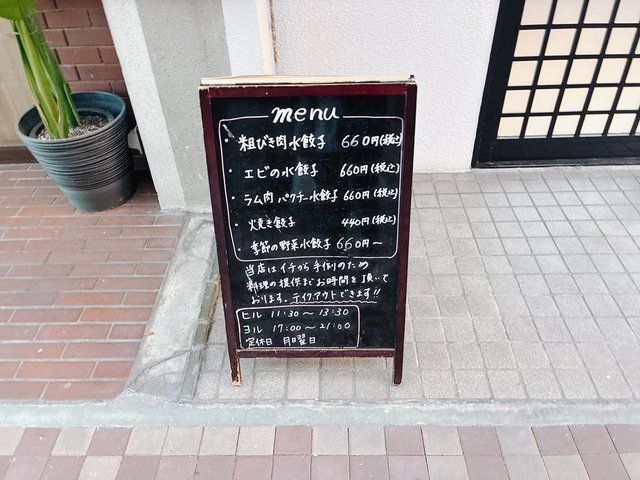 menu
・粗びき肉水餃子 660円(税込)
・エビの水餃子 660円(税込)
・ラム肉パクチー水餃子 660円(税込)
・焼き餃子 440円(税込)
・季節の野菜水餃子 660円~
当店はイチから手作りのため
料理の提供までお時間を頂いて
おります。テイクアウトできます!!
ヒル 11:30~13:30
ヨル 17:00~21:00
定休日 月曜日